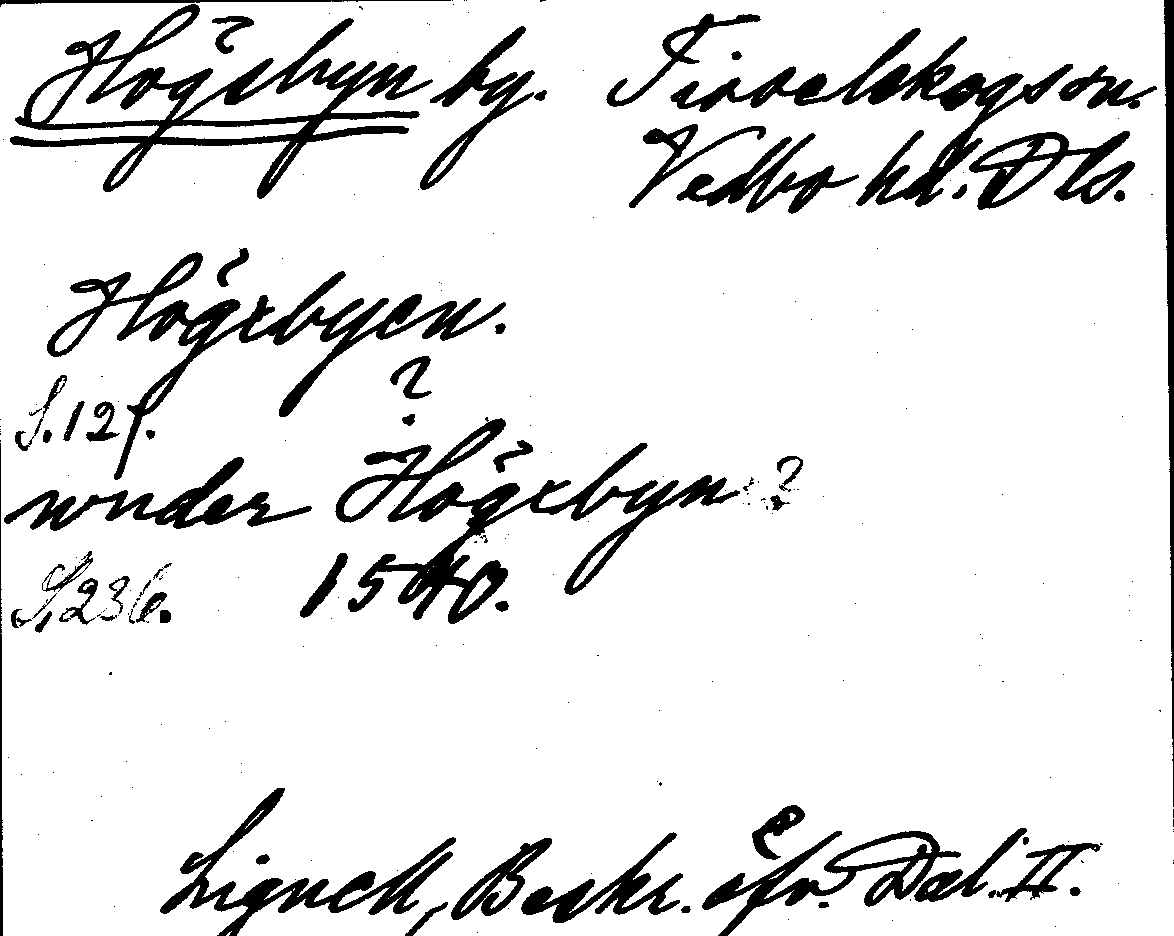 Högsbyn by. Tisselskogs sn.
Vedbo hd. Dls.
Högxbyen.
S. 127.
?
under Högxbyn ?
S. 236. 1540.
Lignell, Beskr. öfv. Dal. II.